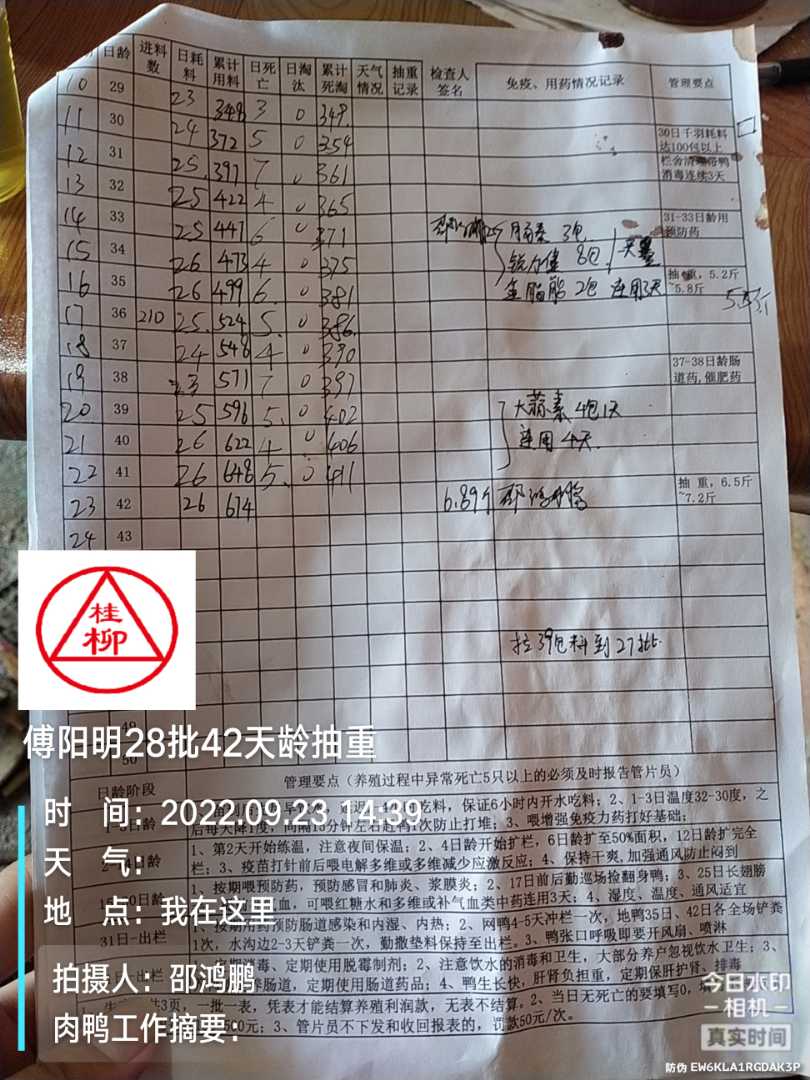 日龄 进料数 日耗料 累计用料 日死亡 日淘汰 累计死淘 天气情况 抽重记录 检查人签名 免疫、用药情况记录 管理要点
10 29 23 348 3 0 349
11 30 24 372 5 0 354 30日千羽耗料达100包以上
12 31 25 397 7 0 361 消毒连续3天
13 32 25 422 4 0 365
14 33 25 447 6 0 371 3包 31-33日龄用预防药
15 34 26 473 4 0 375 8包
16 35 26 499 6 0 381 2包 连用3天 抽重，5.2斤~5.8斤
17 36 210 25 524 5 0 386
18 37 24 548 4 0 390
19 38 23 571 7 0 397 37-38日龄肠道药,催肥药
20 39 25 596 5 0 402 大蒜素 4包1天
21 40 26 622 4 0 406 连用 4天
22 41 26 648 5 0 411
23 42 26 674 6.89斤 抽重，6.5斤~7.2斤
24 43
拉39包料到27批
桂柳
49
50
傅阳明28批42天龄抽重
日龄阶段 管理要点（养殖过程中异常死亡5只以上的必须及时报告管片员）
吃料，保证6小时内开水吃料；2、1-3日温度32-30度，之
时 间：2022.09.23 14:39
后每天降1度，间隔15分钟左右赶鸭1次防止打堆；3、喂增强免疫力药打好基础；
1、第2天开始练温，注意夜间保温；2、4日龄开始扩栏，6日龄扩至50%面积，12日龄扩完全
天 气：
栏；3、疫苗打针前后喂电解多维或多维减少应激反应；4、保持干爽,加强通风防止闷到
1、按期喂预防药，预防感冒和肺炎、浆膜炎；2、17日前后勤巡场捡翻身鸭；3、25日长翅膀
地 点：我在这里
血，可喂红糖水和多维或补气血类中药连用3天；4、湿度、温度、通风适宜
31日-出栏 1、按期用药预防肠道感染和内湿、内热；2、网鸭4-5天冲栏一次，地鸭35日、42日各全场铲粪
1次，水沟边2-3天铲粪一次，勤撒垫料保持至出栏。3、鸭张口呼吸即要开风扇、喷淋
消毒、定期使用脱霉制剂；2、注意饮水的消毒和卫生，大部分养户忽视饮水卫生；3、
拍摄人：邵鸿鹏
肠道，定期使用肠道药品；4、鸭生长快，肝肾负担重，定期保肝护肾、排毒
共3页，一批一表，凭表才能结算养殖利润款，无表不结算。2、当日无死亡的要填写0，
肉鸭工作摘要：
500元；3、管片员不下发和收回报表的，罚款50元/次。
今日水印
相机
真实时间
防伪 EW6KLA1RGDAK3P